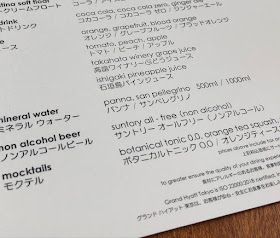 lina soft float
クリームフロート
drink
トドリンク
coca cola, coca cola zero, ginger ale
コカコーラ / コカコーラ ゼロ /
orange, grapefruit, blood orange
オレンジ / グレープフルーツ / ブラッドオレンジ
tomato, peach, apple
トマト / ピーチ / アップル
takahata winery grape juice
高畠ワイナリーぶどうジュース
ishigaki pineapple juice
石垣島パインジュース
mineral water
ミネラル ウォーター
panna, san pellegrino 500ml / 1000ml
パンナ / サンペレグリノ
non alcohol beer
ノンアルコールビール
suntory all - free (non alcohol)
サントリー オールフリー (ノンアルコール)
mocktails
モクテル
botanical tonic 0.0, orange tea squash,
ボタニカルトニック 0.0 / オレンジティース
prices above include tax
to greater ensure the quality of your dining experience
Grand Hyatt Tokyo is ISO 22000:2018 certified,
グランド ハイアット 東京は、